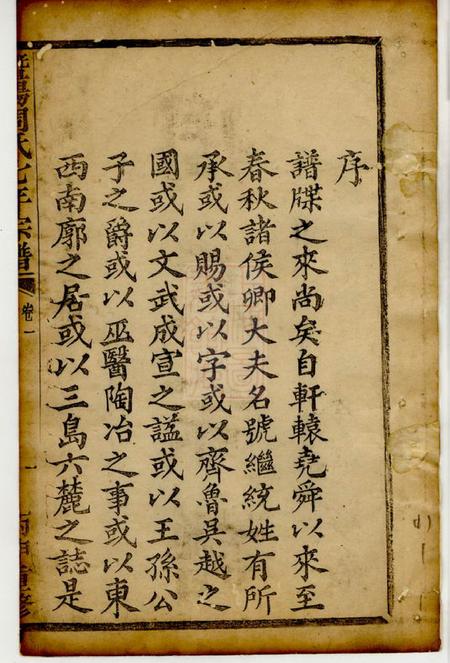 序
譜牒之來尚矣自軒轅堯舜以來至
春秋諸侯卿大夫名號繼統姓有所
承或以賜或以字或以齊魯吳越之
國或以文武成宣之謚或以王孫公
子之爵或以巫醫陶冶之事或以東
西南廓之居或以三島六麓之誌是
周氏七年宗譜
卷一
一